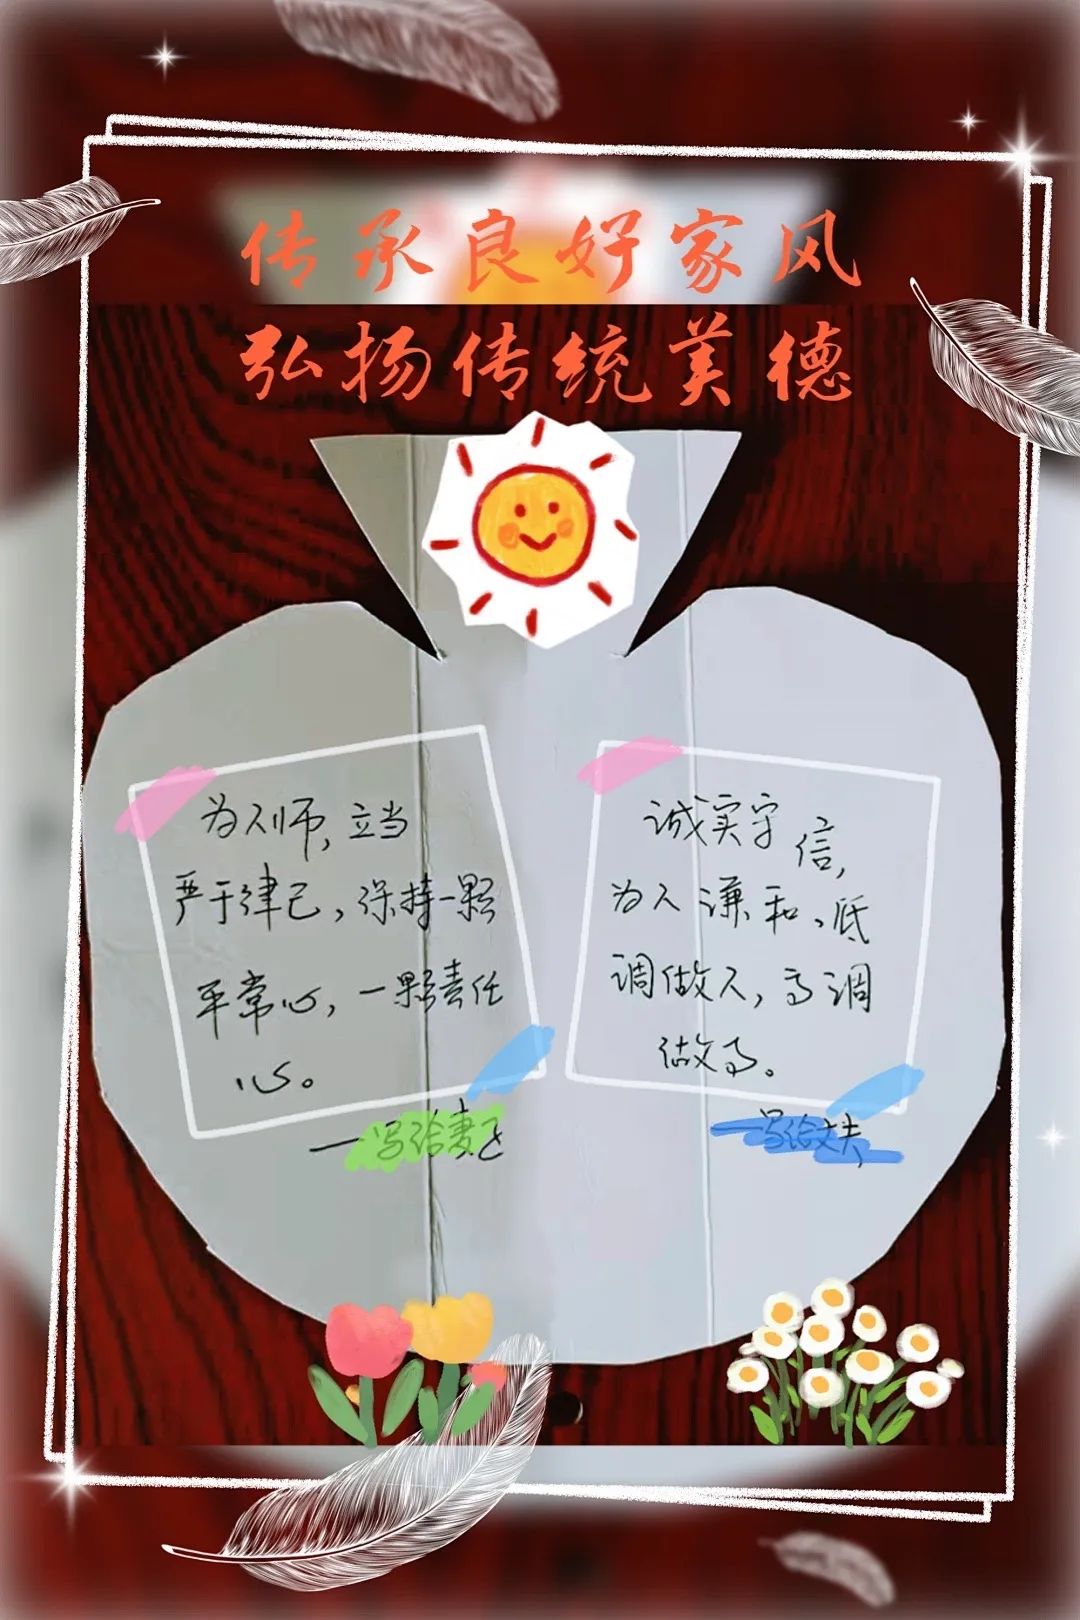 传承良好家风
弘扬传统美德
为人师,立当
严于律己,保持一颗
平常心,一颗责任
心。
—写给妻子
诚实守信,
为人谦和、低
调做人,高调
做事。
—写给丈夫